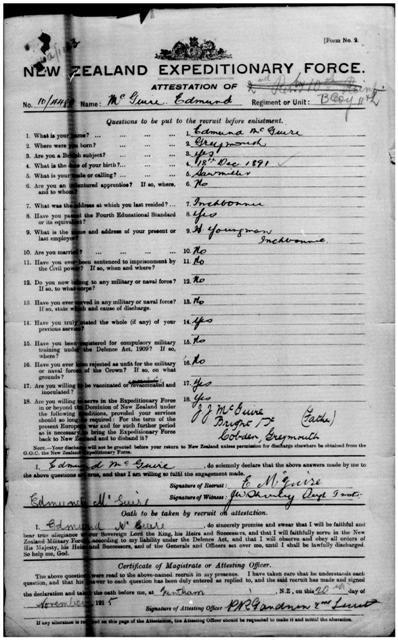 [Form No. 2.
NEW ZEALAND EXPEDITIONARY FORCE.
ATTESTATION OF
No. 10/ Name: Mc Guire Edmund Regiment or Unit: B Coy
Questions to be put to the recruit before enlistment.
1. What is your name? ... 1. Edmund Mc Guire
2. Where were you born? ... 2. Greymouth
3. Are you a British subject? ... 3. yes
4. What is the date of your birth? ... 4. 18th Dec 1891
5. What is your trade or calling? ... 5. Sawmiller
6. Are you an indentured apprentice? If so, where, 6. No
and to whom?
7. What was the address at which you last resided? ... 7. Inchbonnie
8. Have you passed the Fourth Educational Standard 8. yes
or its equivalent?
9. What is the name and address of your present or 9. H Youngman
last employer? Inchbonnie
10. Are you married? ... 10. No
11. Have you ever been sentenced to imprisonment by 11. No
the Civil power? If so, when and where?
12. Do you now belong to any military or naval force? 12. No
If so, to what corps?
13. Have you ever served in any military or naval force? 13. No
If so, state which and cause of discharge.
14. Have you truly stated the whole (if any) of your 14. Yes
previous service?
15. Have you been registered for compulsory military 15. No
training under the Defence Act, 1909? If so,
where?
16. Have you ever been rejected as unfit for the military 16. No
or naval forces of the Crown? If so, on what
grounds?
17. Are you willing to be vaccinated or revaccinated and 17. Yes
inoculated?
18. Are you willing to serve in the Expeditionary Force 18. Yes
in or beyond the Dominion of New Zealand under
the following conditions, provided your services
should so long be required: For the term of the
present European war and for such further period
as is necessary to bring the Expeditionary Force
back to New Zealand and to disband it?
J J McGuire (Father)
Bright St
Cobden, Greymouth
NOTE.—Your discharge will not be granted before your return to New Zealand unless permission for discharge elsewhere be obtained from the
G.O.C. the New Zealand Expeditionary Force.
I, Edmund Mc Guire, do solemnly declare that the above answers made by me to
the above questions are true, and that I am willing to fulfil the engagement made.
Signature of Recruit: E McGuire
Signature of Witness:
Edmund Mc Guire
Oath to be taken by recruit on attestation.
I, Edmund Mc Guire, do sincerely promise and swear that I will be faithful and
bear true allegiance to our Sovereign Lord the King, his Heirs and Successors, and that I will faithfully serve in the
New Zealand Military Forces, according to my liability under the Defence Act, and that I will observe and obey all orders of
His Majesty, his Heirs and Successors, and of the Generals and Officers set over me, until I shall be lawfully discharged.
So help me, God.
Certificate of Magistrate or Attesting Officer.
The above questions were read to the above-named recruit in my presence. I have taken care that he understands each
question, and that his answer to each question has been duly entered as replied to, and the said recruit has made and signed
the declaration and taken the oath before me, at Trentham, N.Z., on this 20th day of
November 1915
Signature of Attesting Officer
If any alteration is required on this page of the Attestation, the Attesting Officer should initial the alteration.